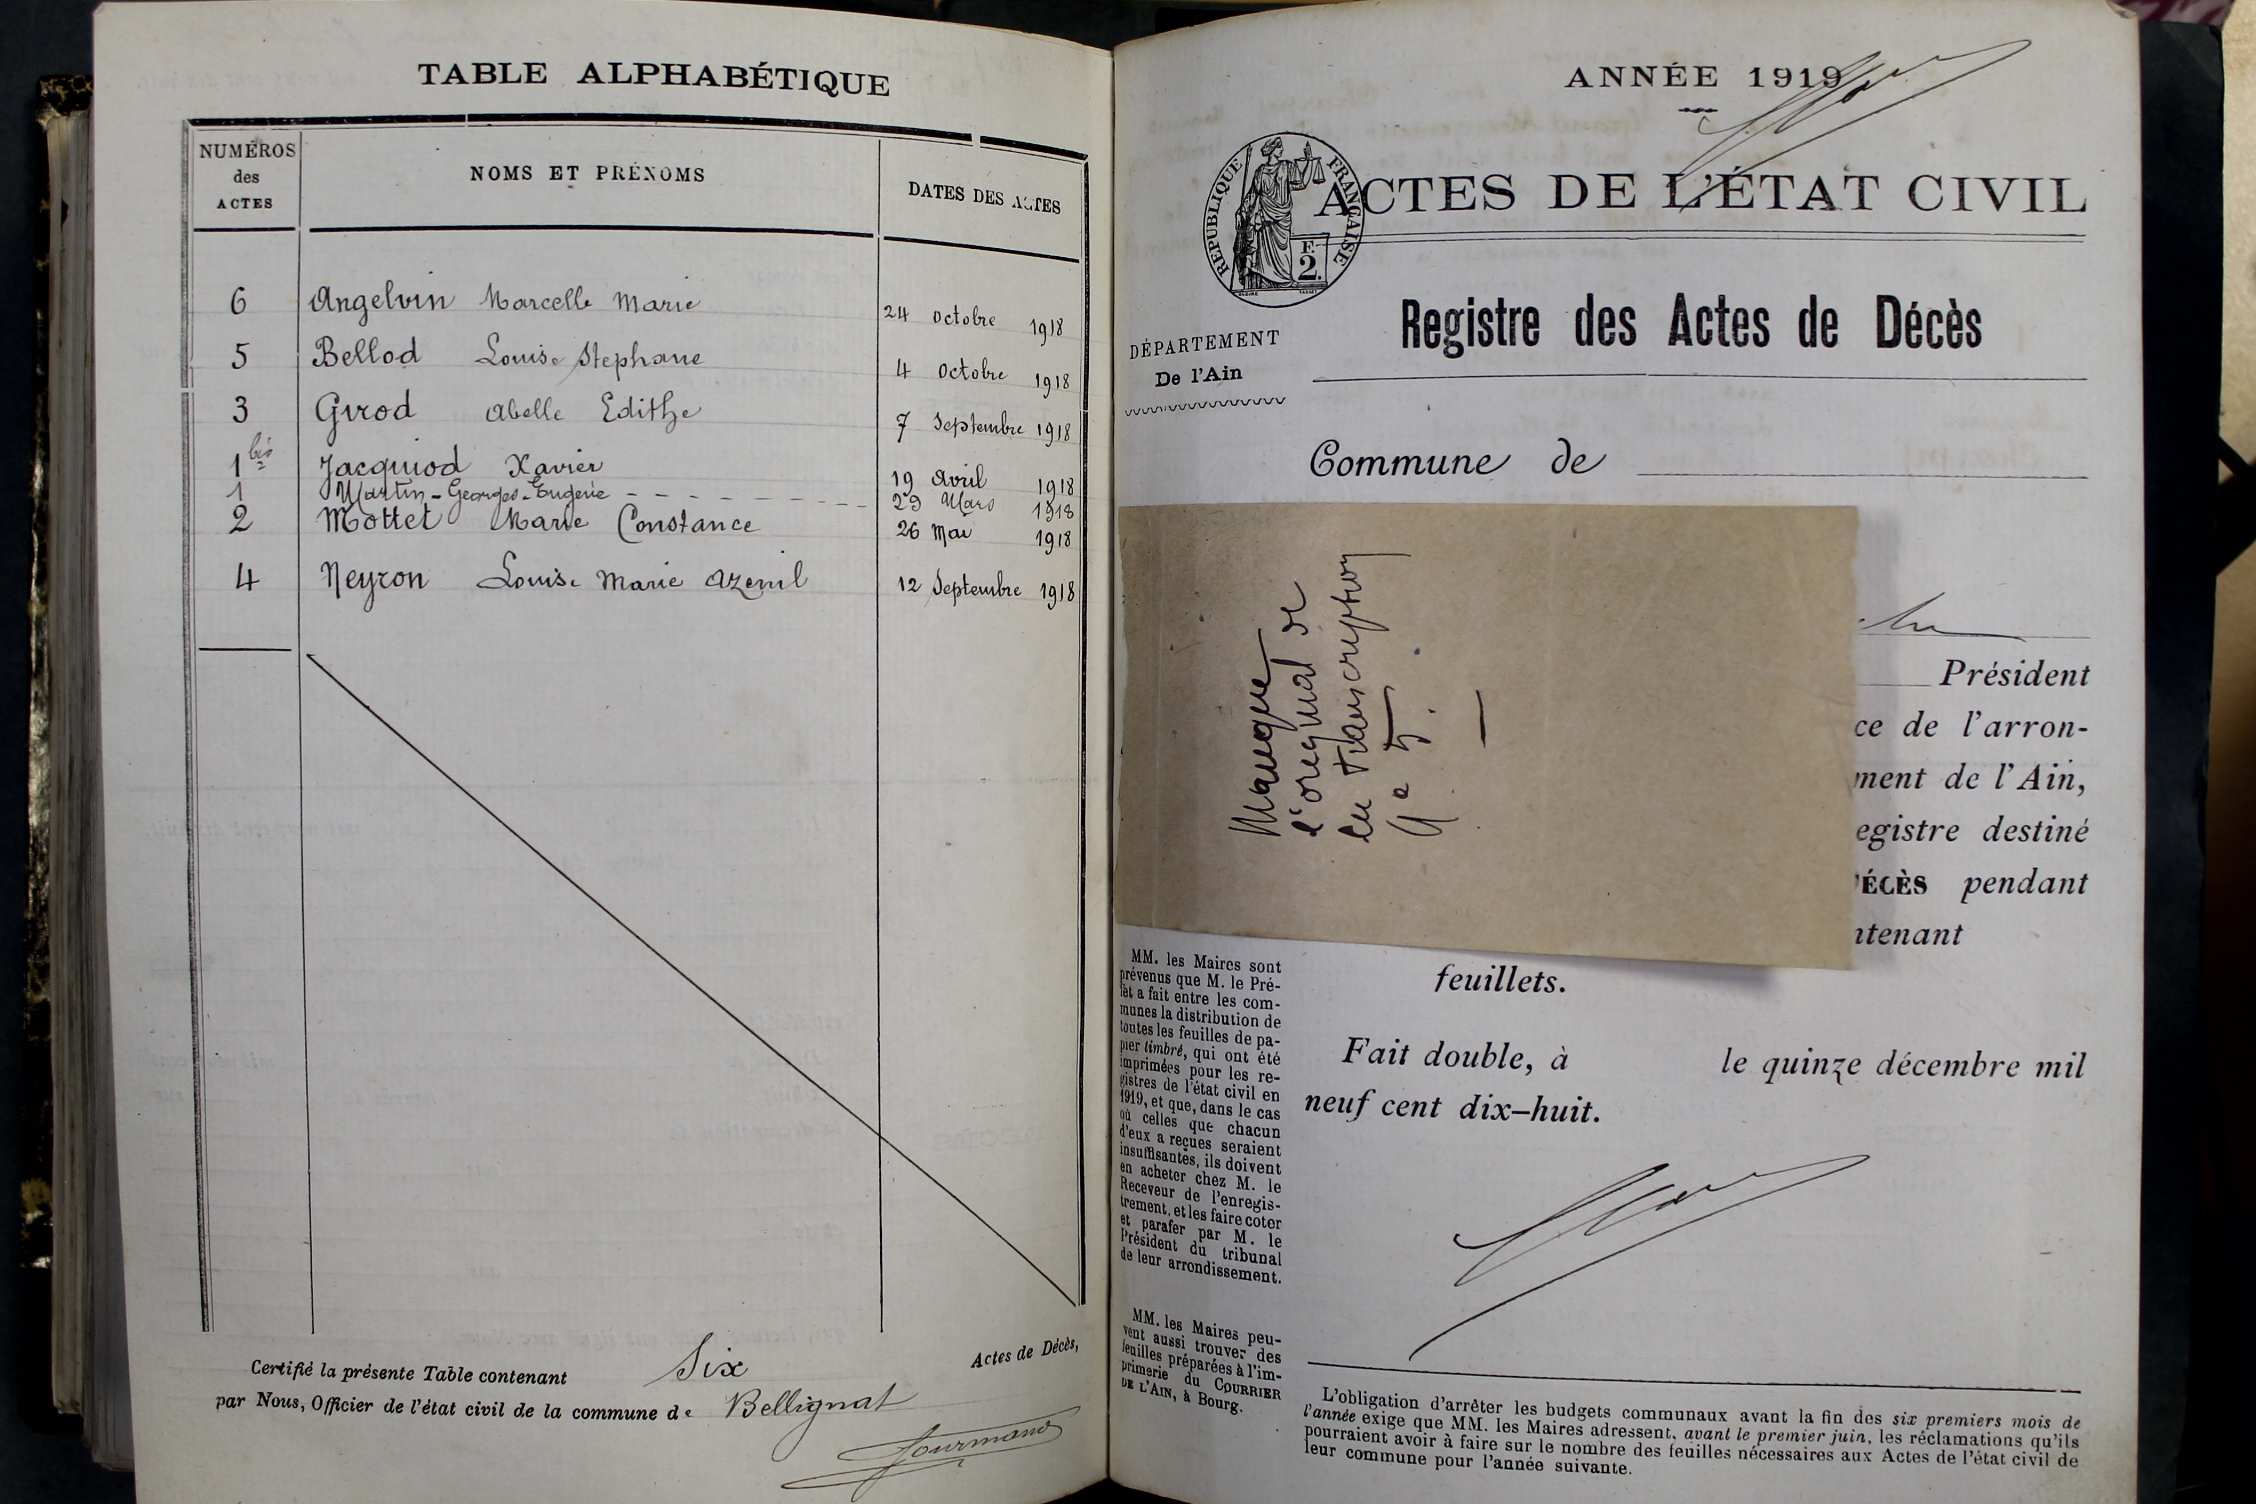 TABLE ALPHABÉTIQUE
NUMÉROS des ACTES
NOMS ET PRÉNOMS
DATES DES ACTES
6 Angelvin Marcelle Marie 24 octobre 1918
5 Bellod Louise Stephane 4 octobre 1918
3 Girod Abelle Edithe 7 Septembre 1918
1 bis Jacquiod Xavier 19 avril 1918
1 Martin - Georges - Eugene 29 Mars 1918
2 Mottet Marie Constance 26 Mai 1918
4 Neyron Louise Marie Azenil 12 Septembre 1918
Certifié la présente Table contenant Six Actes de Décès,
par Nous, Officier de l'état civil de la commune de Bellignat
ANNÉE 1919
REPUBLIQUE FRANÇAISE
F.
2.
ACTES DE L'ÉTAT CIVIL
Registre des Actes de Décès
DÉPARTEMENT
De l'Ain
Commune de
Manque
l'original de
la transcription
n° 5.
Président
ce de l'arron-
ment de l'Ain,
egistre destiné
DÉCÈS pendant
ntenant
feuillets.
Fait double, à le quinze décembre mil
neuf cent dix-huit.
MM. les Maires sont
prévenus que M. le Pré-
fet a fait entre les com-
munes la distribution de
toutes les feuilles de pa-
pier timbré, qui ont été
imprimées pour les re-
gistres de l'état civil en
1919, et que, dans le cas
où celles que chacun
d'eux a reçues seraient
insuffisantes, ils doivent
en acheter chez M. le
Receveur de l'enregis-
trement, et les faire coter
et parafer par M. le
Président du tribunal
de leur arrondissement.
MM. les Maires peu-
vent aussi trouver des
feuilles préparées à l'im-
primerie du COURRIER
DE L'AIN, à Bourg.
L'obligation d'arrêter les budgets communaux avant la fin des six premiers mois de
l'année exige que MM. les Maires adressent, avant le premier juin, les réclamations qu'ils
pourraient avoir à faire sur le nombre des feuilles nécessaires aux Actes de l'état civil de
leur commune pour l'année suivante.